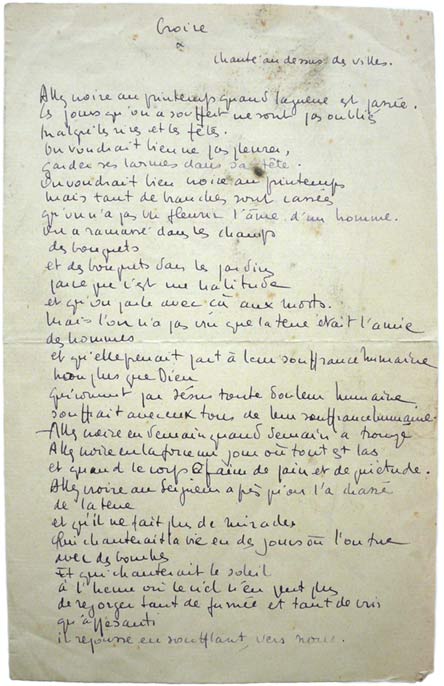 Croire
x
chante au dessus des villes.
Allez croire au printemps quand la guerre est passée.
Les jours qu'on a souffert ne sont pas oubliés
malgré les rires et les fêtes.
On voudrait bien ne pas pleurer,
garder ses larmes dans sa tête.
On voudrait bien croire au printemps
mais tant de branches sont cassées
qu'on n'a pas vu fleurir l'âme d'un homme.
On a ramassé dans les champs
des bouquets
et des bouquets dans les jardins
parce que c'est une habitude
et qu'on parle avec ça aux morts.
Mais l'on n'a pas vu que la terre était l'amie
des hommes
et qu'elle prenait part à leur souffrance humaine
non plus que Dieu
qui connut par Jésus toute douleur humaine
souffrait avec eux tous de leur souffrance humaine.
Allez croire en demain quand demain a
Allez croire en la force un jour où tout est las
et quand le corps a faim de pain et de quiétude.
Allez croire au Seigneur après qu'on l'a chassé
de la terre
et qu'il ne fait plus de miracles
Qui chanterait la vie en des jours où l'on tue
avec des bombes
Et qui chanterait le soleil
à l'heure où le ciel n'en peut plus
de regorger tant de fumée et tant de cris
qu'
il repousse en soufflant, vers nous.